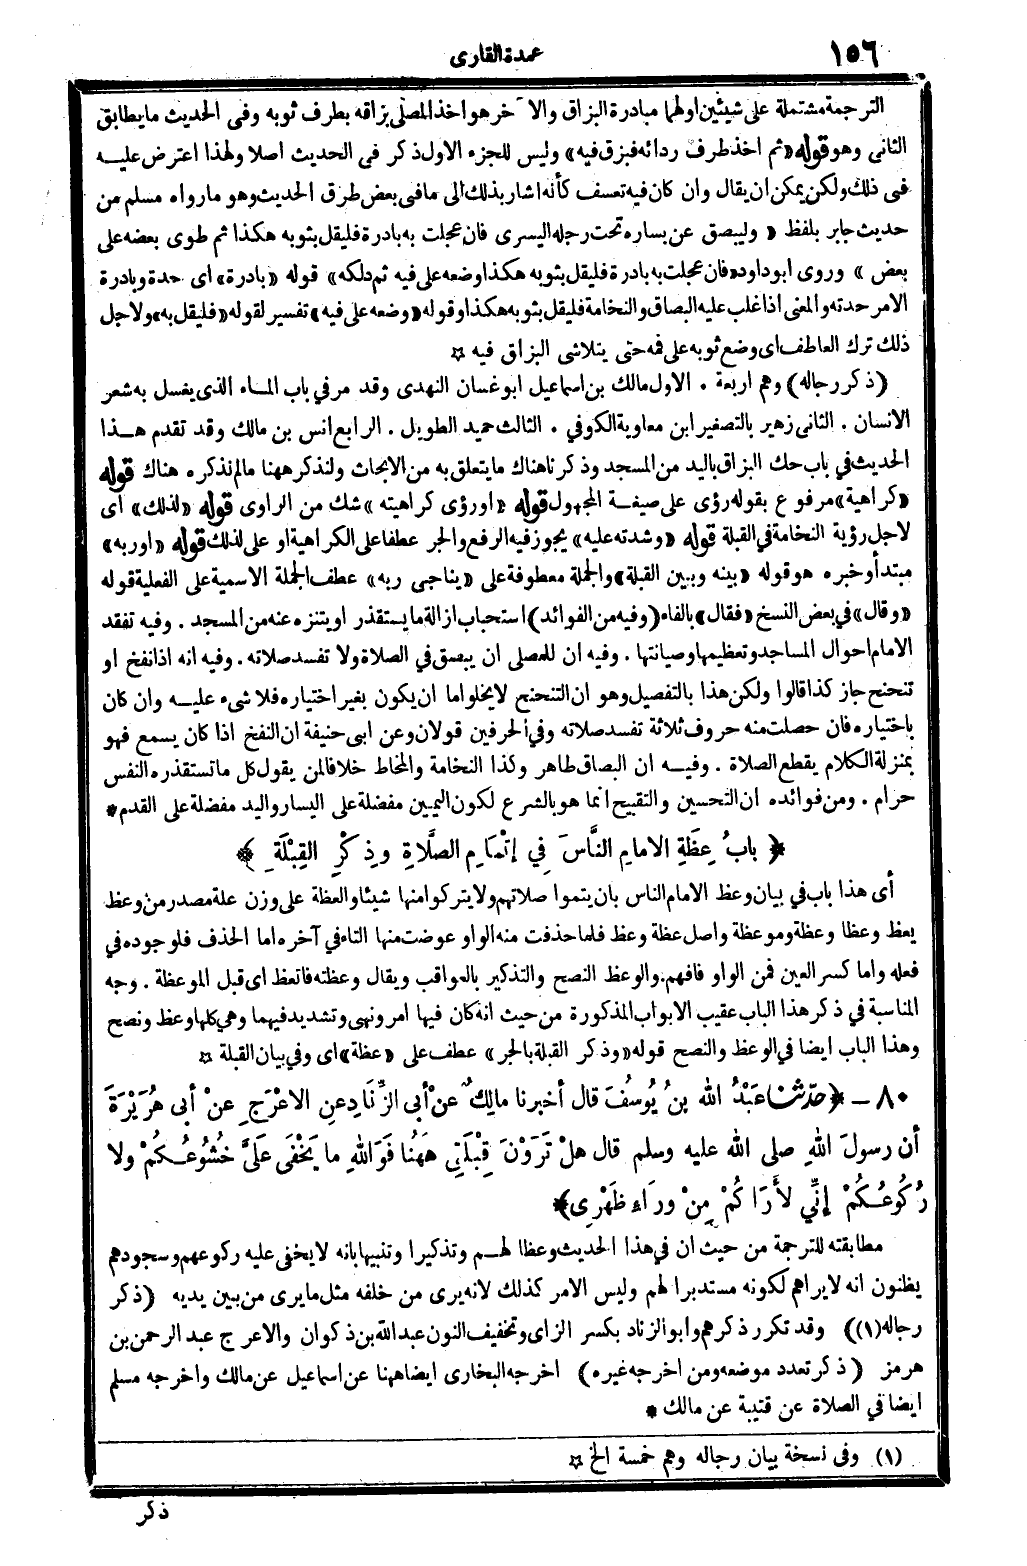 ١٥٦
عمدة القارى
الترجمة مشتملة على شيئين اولهما مبادرة البزاق والآخر هو اخذ المصلى بزاقه بطرف ثوبه وفى الحديث ما يطابق
الثانى وهو قوله «ثم اخذ طرف ردائه فبزق فيه» وليس للجزء الاول ذكر فى الحديث اصلا ولهذا اعترض عليه
فى ذلك ولكن يمكن ان يقال وان كان فيه تعسف كأنه اشار بذلك الى مافى بعض طرق الحديث وهو مارواه مسلم من
حديث جابر بلفظ « وليبصق عن يساره تحت رجله اليسرى فان عجلت به بادرة فليقل بثوبه هكذا ثم طوى بعضه على
بعض » وروى ابو داود «فان عجلت به بادرة فليقل بثوبه هكذا وضعه على فيه ثم دلكه» قوله «بادرة» اى حدة وبادرة
الامر حدته والمعنى اذا غلب عليه البصاق والنخامة فليقل بثوبه هكذا وقوله «وضعه على فيه» تفسير لقوله «فليقل به» ولاجل
ذلك ترك العاطف اى وضع ثوبه على فمه حتى يتلاشى البزاق فيه ☆
(ذكر رجاله) وهم اربعة . الاول مالك بن اسماعيل ابو غسان النهدى وقد مر في باب الماء الذى يغسل به شعر
الانسان . الثانى زهير بالتصغير ابن معاوية الكوفي . الثالث حميد الطويل . الرابع انس بن مالك وقد تقدم هذا
الحديث في باب حك البزاق باليد من المسجد وذكرنا هناك ما يتعلق به من الابحاث ولنذكر ههنا مالم نذكره هناك قوله
«كراهية» مرفوع بقوله رؤى على صيغة المجهول قوله «اورؤى كراهيته» شك من الراوى قوله «لذلك» اى
لاجل رؤية النخامة في القبلة قوله «وشدته عليه» يجوز فيه الرفع والجر عطفا على الكراهية او على لذلك قوله «اوربه»
مبتدأ وخبره هو قوله «بينه وبين القبلة» والجملة معطوفة على «يناجى ربه» عطف الجملة الاسمية على الفعلية قوله
«وقال» في بعض النسخ «فقال» بالفاء (وفيه من الفوائد) استحباب ازالة ما يستقذر او يتنزه عنه من المسجد . وفيه تفقد
الامام احوال المساجد وتعظيمها وصيانتها . وفيه ان للمصلى ان يبصق في الصلاة ولا تفسد صلاته . وفيه انه اذا نفخ او
تنحنح جاز كذا قالوا ولكن هذا بالتفصيل وهو ان التنحنح لا يخلو اما ان يكون بغير اختياره فلا شىء عليه وان كان
باختياره فان حصلت منه حروف ثلاثة تفسد صلاته وفي الحرفين قولان وعن ابى حنيفة ان النفخ اذا كان يسمع فهو
بمنزلة الكلام يقطع الصلاة . وفيه ان البصاق طاهر وكذا النخامة والمخاط خلافا لمن يقول كل ما تستقذره النفس
حرام . ومن فوائده ان التحسين والتقبيح انما هو بالشرع لكون اليمين مفضلة على اليسار واليد مفضلة على القدم *
﴿ بابُ عِظَةِ الامامِ النَّاسَ فِي إتْمَامِ الصَّلَاةِ وذِكْرِ القِبْلَةِ ﴾
أى هذا باب في بيان وعظ الامام الناس بان يتموا صلاتهم ولا يتركوا منها شيئا والعظة على وزن علة مصدر من وعظ
يعظ وعظا وعظة وموعظة واصل عظة وعظ فلما حذفت منه الواو عوضت منها التاء في آخره اما الحذف فلوجوده في
فعله واما كسر العين فمن الواو فافهم. والوعظ النصح والتذكير بالعواقب ويقال وعظته فاتعظ اى قبل الموعظة . وجه
المناسبة في ذكر هذا الباب عقيب الابواب المذكورة من حيث انه كان فيها امر ونهى وتشديد فيهما وهي كلها وعظ ونصح
وهذا الباب ايضا في الوعظ والنصح قوله «وذكر القبلة بالجر» عطف على «عظة» اى وفي بيان القبلة ☆
٨٠ - ﴿ حدّثنا عَبْدُ اللهِ بنُ يُوسُفَ قال أخبرنا مالِكٌ عنْ أبى الزِّنَادِ عنِ الاعْرَجِ عنْ أبى هُرَيْرَةَ
أن رسولَ اللهِ صلى الله عليه وسلم قال هلْ تَرَوْنَ قِبْلَتِي هَهُنَا فَوَاللهِ ما يَخْفَى عَلَيَّ خُشُوعُكُمْ ولا
رُكُوعُكُمْ إنِّي لأَرَاكُمْ مِنْ ورَاءِ ظَهْرِى ﴾
مطابقته للترجمة من حيث ان في هذا الحديث وعظا لهم وتذكيرا وتنبيها بانه لا يخفى عليه ركوعهم وسجودهم
يظنون انه لا يراهم لكونه مستدبرا لهم وليس الامر كذلك لانه يرى من خلفه مثل ما يرى من بين يديه (ذكر
رجاله (١)) وقد تكرر ذكرهم وابو الزناد بكسر الزاى وتخفيف النون عبد الله بن ذكوان والاعرج عبد الرحمن بن
هرمز (ذكر تعدد موضعه ومن اخرجه غيره) اخرجه البخارى ايضا ههنا عن اسماعيل عن مالك واخرجه مسلم
ايضا في الصلاة عن قتيبة عن مالك *
(١) وفى نسخة بيان رجاله وهم خمسة الخ ☆
ذكر